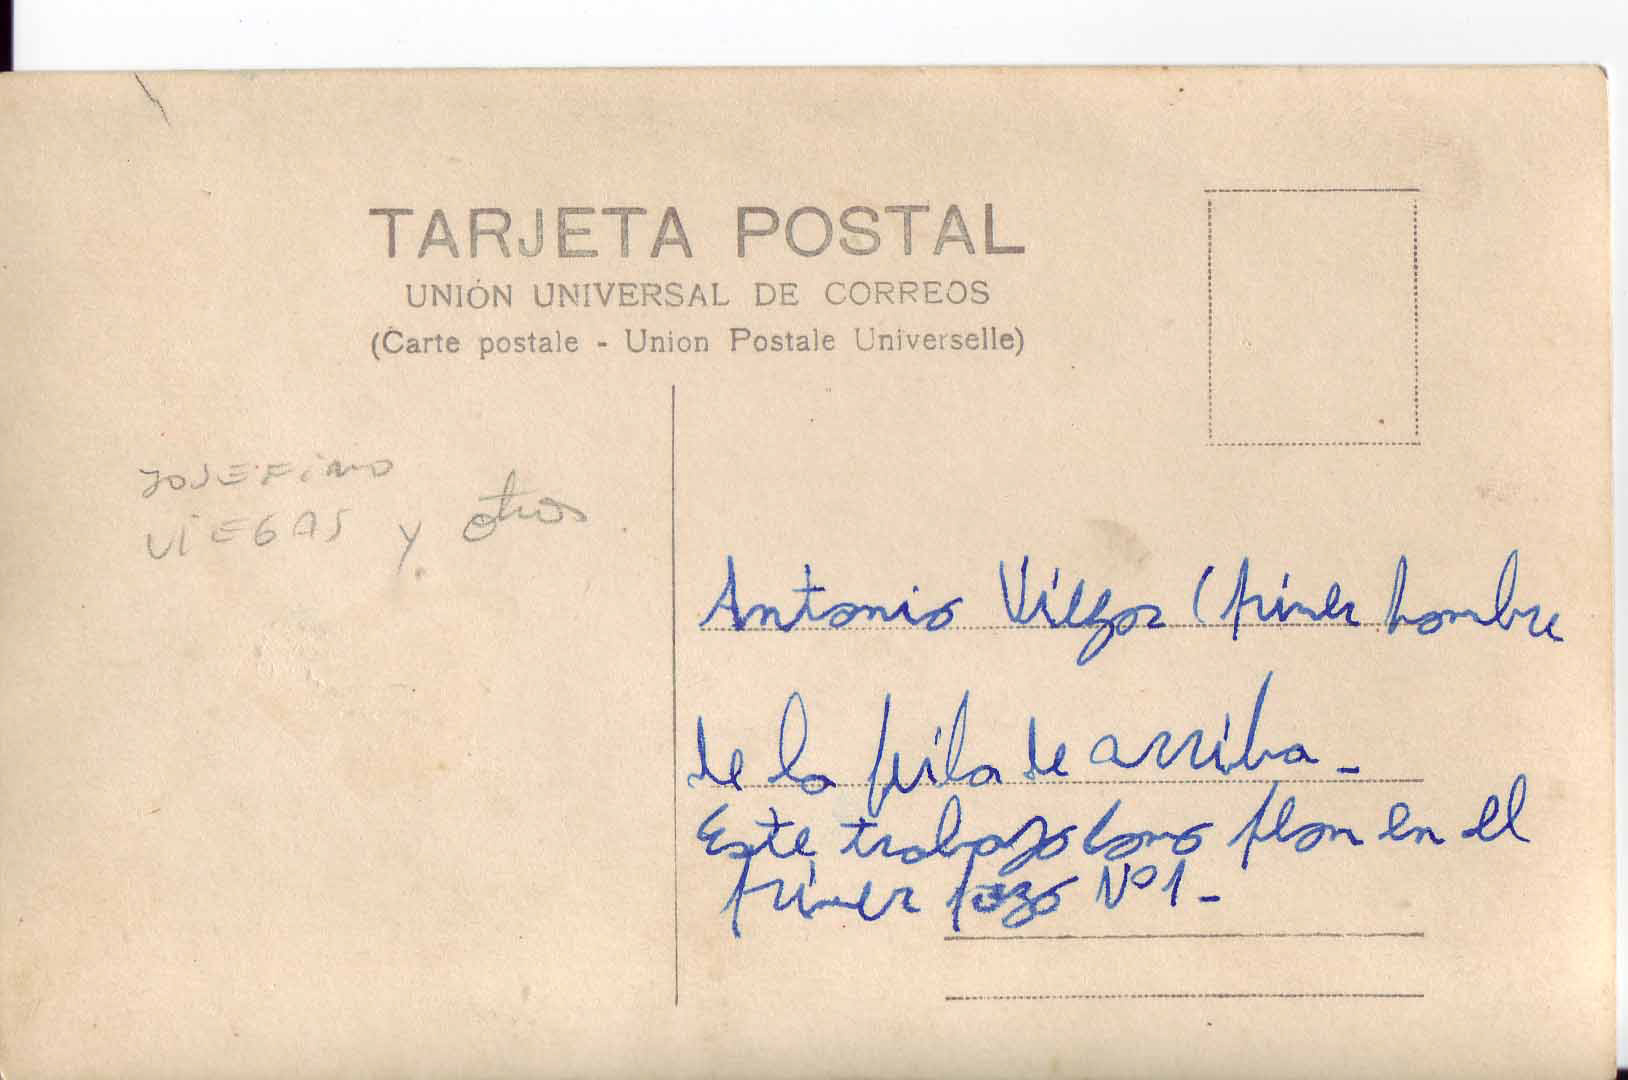 TARJETA POSTAL
UNIÓN UNIVERSAL DE CORREOS
(Carte postale - Union Postale Universelle)
JOSEFINO
VIEGAS y otros.
Antonio Viegas (primer hombre
de la fila de arriba -
Este trabajo como peon en el
primer pozo Nº1 -